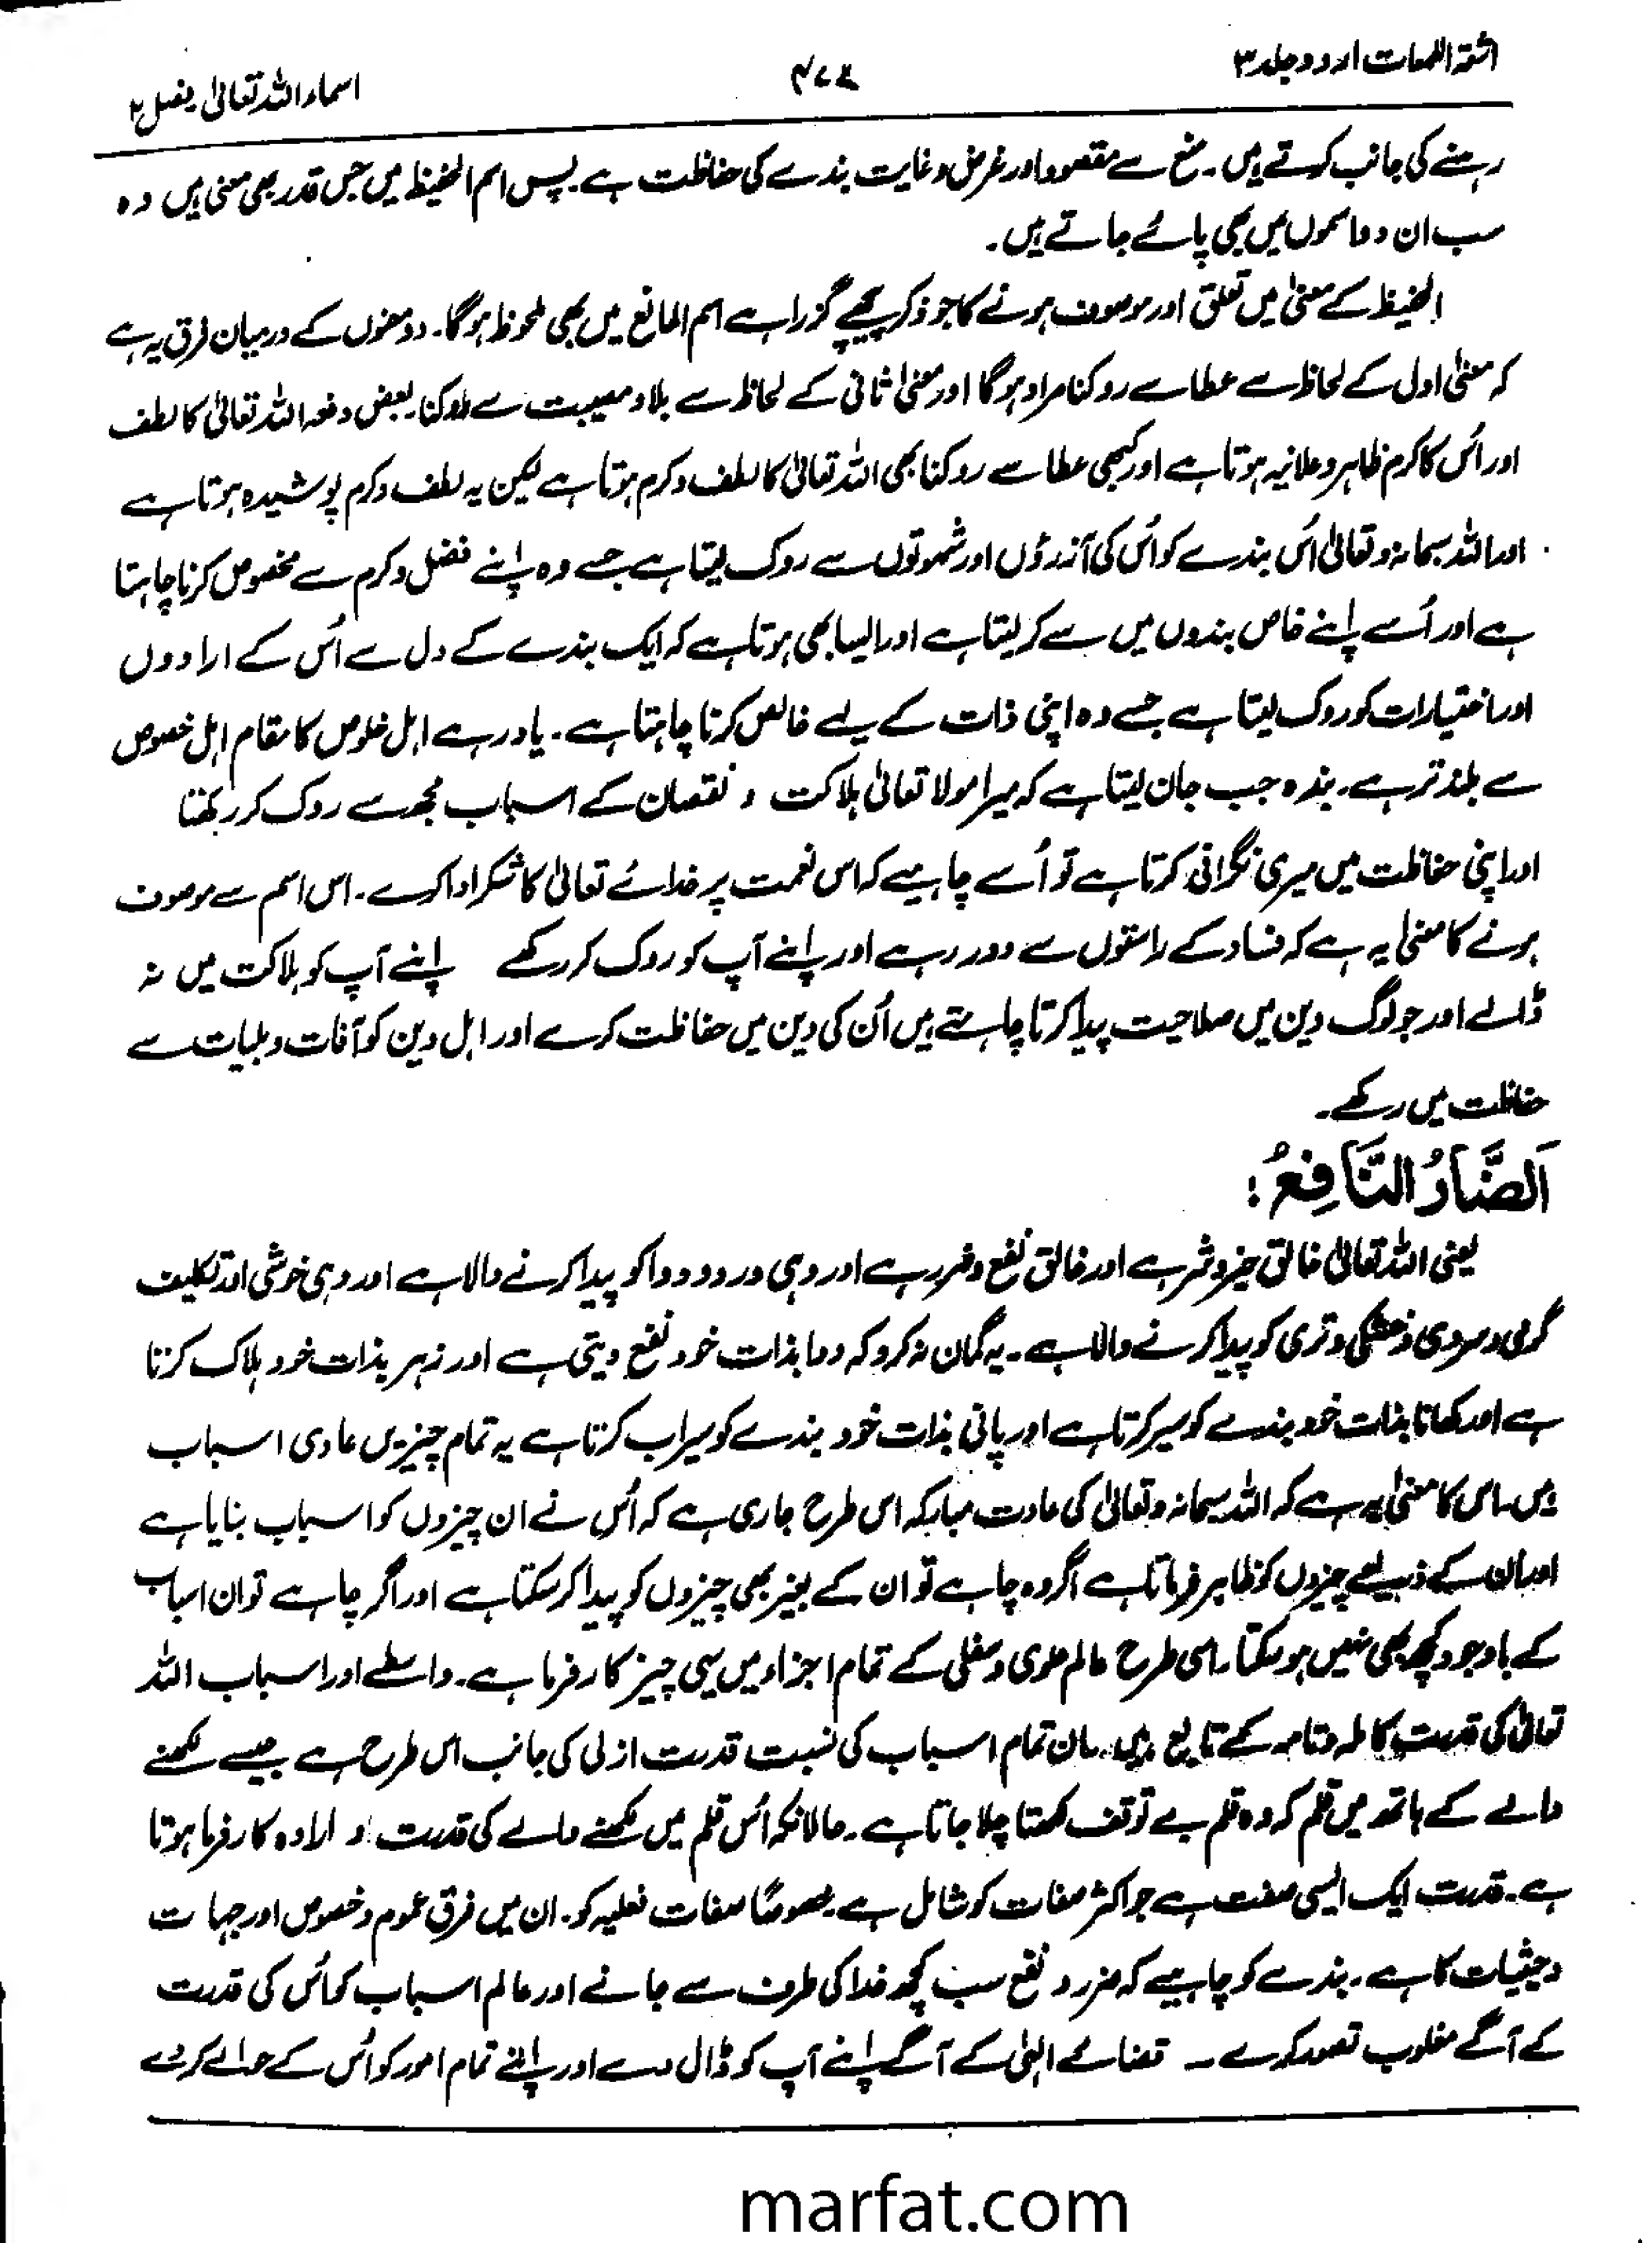 اشعۃ اللمعات اردو جلد ۳
۴۷۴
اسماء اللہ تعالیٰ، فصل ۲
رہنے کی جانب کرتے ہیں۔ منع سے مقصود اور غرض و غایت بندے کی حفاظت ہے۔ پس اسم الحفیظ میں جس قدر بھی معنی ہیں وہ
سب ان دو اسموں میں بھی پائے جاتے ہیں۔
الحفیظ کے معنیٰ میں تعلق اور موصوف ہونے کا جو ذکر پیچھے گزرا ہے اسم المانع میں بھی ملحوظ ہوگا۔ دو معنوں کے درمیان فرق یہ ہے
کہ معنیٰ اول کے لحاظ سے عطا سے روکنا مراد ہوگا اور معنیٰ ثانی کے لحاظ سے بلا و مصیبت سے روکنا۔ بعض دفعہ اللہ تعالیٰ کا لطف
اور اُس کا کرم ظاہر و علانیہ ہوتا ہے اور کبھی عطا سے روکنا بھی اللہ تعالیٰ کا لطف و کرم ہوتا ہے لیکن یہ لطف و کرم پوشیدہ ہوتا ہے
اور اللہ سبحانہ و تعالیٰ اُس بندے کو اُس کی آرزوؤں اور شہوتوں سے روک لیتا ہے جسے وہ اپنے فضل و کرم سے مخصوص کرنا چاہتا
ہے اور اُسے اپنے خاص بندوں میں سے کر لیتا ہے اور ایسا بھی ہوتا ہے کہ ایک بندے کے دل سے اُس کے ارادوں
اور اختیارات کو روک لیتا ہے جسے وہ اپنی ذات کے لیے خالص کرنا چاہتا ہے۔ یاد رہے اہل خلوص کا مقام اہل خصوص
سے بلند تر ہے۔ بندہ جب جان لیتا ہے کہ میرا مولا تعالیٰ ہلاکت و نقصان کے اسباب مجھ سے روک کر رکھتا
اور اپنی حفاظت میں میری نگرانی کرتا ہے تو اُسے چاہیے کہ اس نعمت پر خدائے تعالیٰ کا شکر ادا کرے۔ اس اسم سے موصوف
ہونے کا معنیٰ یہ ہے کہ فساد کے راستوں سے دور رہے اور اپنے آپ کو روک کر رکھے اپنے آپ کو ہلاکت میں نہ
ڈالے اور جو لوگ دین میں صلاحیت پیدا کرتا چاہتے ہیں اُن کی دین میں حفاظت کرے اور اہل دین کو آفات و بلیات سے
حفاظت میں رکھے۔
اَلضَّارُ النَّافِعُ:
یعنی اللہ تعالیٰ خالق خیر و شر ہے اور خالق نفع و ضرر ہے اور وہی درد و دوا کو پیدا کرنے والا ہے اور وہی خوشی اور تکلیف
گرمی و سردی و خشکی و تری کو پیدا کرنے والا ہے۔ یہ گمان نہ کرو کہ دوا بذات خود نفع دیتی ہے اور زہر بذات خود ہلاک کرتا
ہے اور کھانا بذات خود بندے کو سیر کرتا ہے اور پانی بذات خود بندے کو سیراب کرتا ہے یہ تمام چیزیں عادی اسباب
ہیں۔ اس کا معنیٰ یہ ہے کہ اللہ سبحانہ و تعالیٰ کی عادت مبارکہ اس طرح جاری ہے کہ اُس نے ان چیزوں کو اسباب بنایا ہے
اور ان کے ذریعے چیزوں کو ظاہر فرماتا ہے اگر وہ چاہے تو ان کے بغیر بھی چیزوں کو پیدا کر سکتا ہے اور اگر چاہے تو ان اسباب
کے باوجود کچھ بھی نہیں ہو سکتا۔ اسی طرح عالم علوی و سفلی کے تمام اجزاء میں یہی چیز کارفرما ہے۔ واسطے اور اسباب اللہ
تعالیٰ کی قدرت کاملہ و تامہ کے تابع ہیں۔ ان تمام اسباب کی نسبت قدرت ازلی کی جانب اس طرح ہے جیسے لکھنے
والے کے ہاتھ میں قلم کہ وہ قلم بے توقف لکھتا چلا جاتا ہے۔ حالانکہ اُس قلم میں لکھنے والے کی قدرت و ارادہ کارفرما ہوتا
ہے۔ قدرت ایک ایسی صفت ہے جو اکثر صفات کو شامل ہے۔ خصوصًا صفات فعلیہ کو۔ ان میں فرق عموم و خصوص اور جہات
و حیثیات کا ہے۔ بندے کو چاہیے کہ ضرر و نفع سب کچھ خدا کی طرف سے جانے اور عالم اسباب کو اُس کی قدرت
کے آگے مغلوب تصور کرے ۔ قضائے الٰہی کے آگے اپنے آپ کو ڈال دے اور اپنے تمام امور کو اُس کے حوالے کر دے
marfat.com